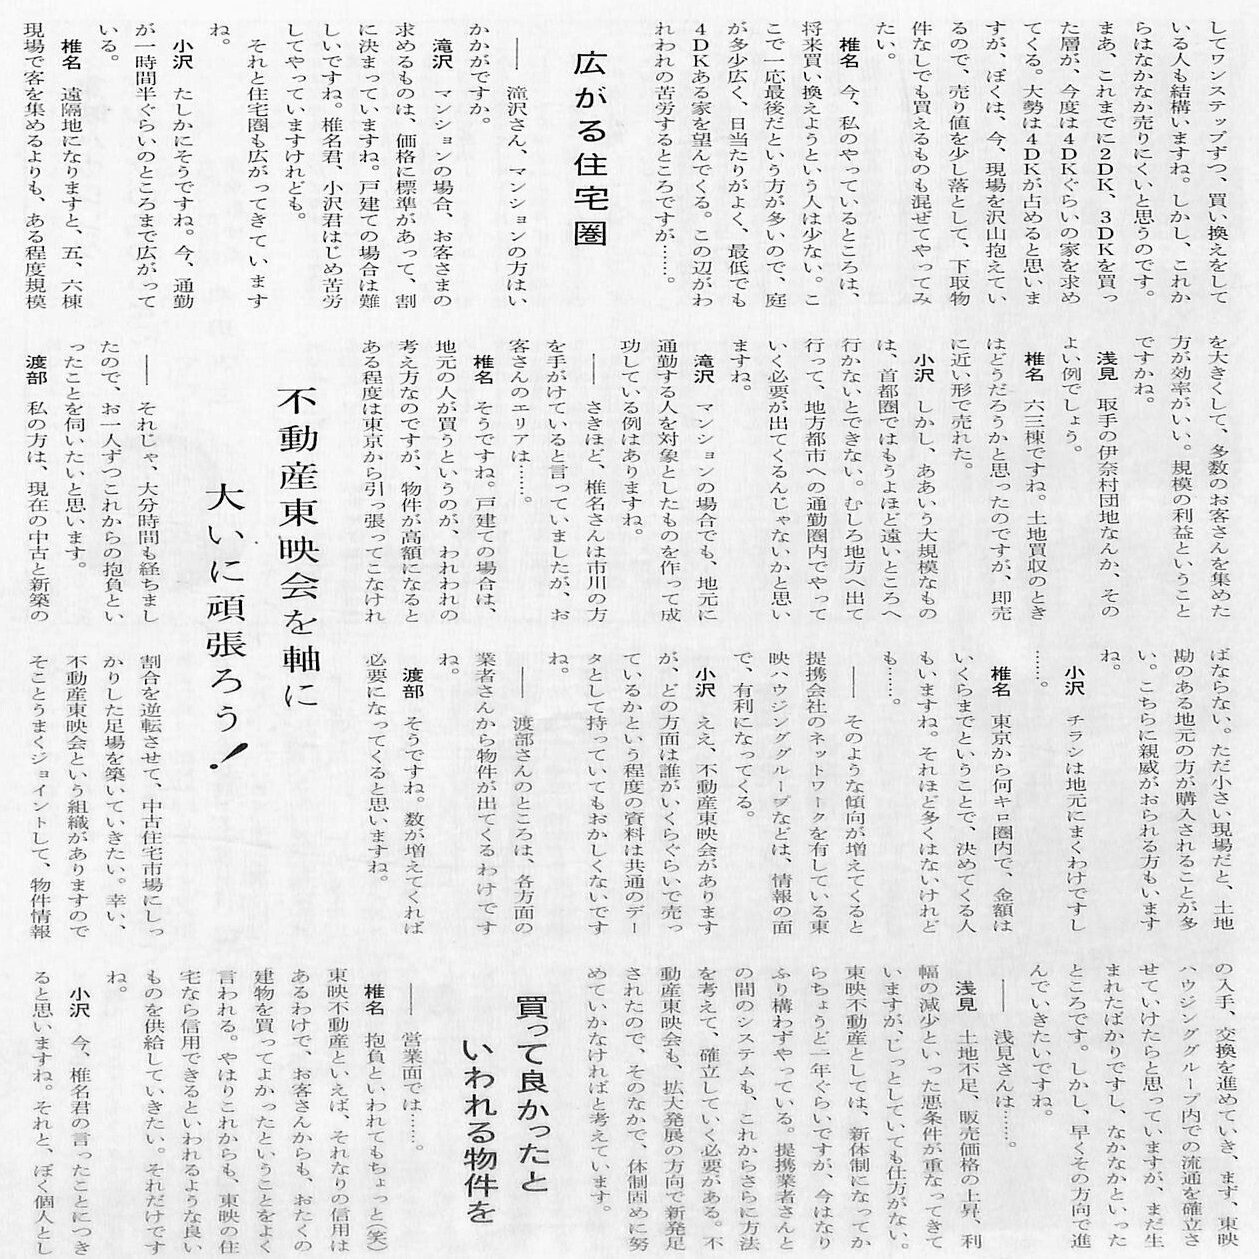 してワンステップずつ、買い換えをして
いる人も結構いますね。しかし、これか
らはなかなか売りにくいと思うのです。
まあ、これまでに2DK、3DKを買っ
た層が、今度は4DKぐらいの家を求め
てくる。大勢は4DKが占めると思いま
すが、ぼくは、今、現場を沢山抱えてい
るので、売り値を少し落として、下取物
件なしでも買えるものも混ぜてやってみ
たい。
椎名 今、私のやっているところは、
将来買い換えようという人は少ない。こ
こで一応最後だという方が多いので、庭
が多少広く、日当たりがよく、最低でも
4DKある家を望んでくる。この辺がわ
れわれの苦労するところですが……。
広がる住宅圏
── 滝沢さん、マンションの方はい
かかがですか。
滝沢 マンションの場合、お客さまの
求めるものは、価格に標準があって、割
に決まっていますね。戸建ての場合は難
しいですね。椎名君、小沢君はじめ苦労
してやっていますけれども。
それと住宅圏も広がってきています
ね。
小沢 たしかにそうですね。今、通勤
が一時間半ぐらいのところまで広がって
いる。
椎名 遠隔地になりますと、五、六棟
現場で客を集めるよりも、ある程度規模
を大きくして、多数のお客さんを集めた
方が効率がいい。規模の利益ということ
ですかね。
浅見 取手の伊奈村団地なんか、その
よい例でしょう。
椎名 六三棟ですね。土地買収のとき
はどうだろうかと思ったのですが、即売
に近い形で売れた。
小沢 しかし、ああいう大規模なもの
は、首都圏ではもうよほど遠いところへ
行かないとできない。むしろ地方へ出て
行って、地方都市への通勤圏内でやって
いく必要が出てくるんじゃないかと思い
ますね。
滝沢 マンションの場合でも、地元に
通勤する人を対象としたものを作って成
功している例はありますね。
── さきほど、椎名さんは市川の方
を手がけていると言っていましたが、お
客さんのエリアは……。
椎名 そうですね。戸建ての場合は、
地元の人が買うというのが、われわれの
考え方なのですが、物件が高額になると
ある程度は東京から引っ張ってこなけれ
不動産東映会を軸に
大いに頑張ろう!
── それじゃ、大分時間も経ちまし
たので、お一人ずつこれからの抱負とい
ったことを伺いたいと思います。
渡部 私の方は、現在の中古と新築の
ばならない。ただ小さい現場だと、土地
勘のある地元の方が購入されることが多
い。こちらに親戚がおられる方もいます
ね。
小沢 チラシは地元にまくわけですし
……。
椎名 東京から何キロ圏内で、金額は
いくらまでということで、決めてくる人
もいますね。それほど多くはないけれど
も……。
── そのような傾向が増えてくると
提携会社のネットワークを有している東
映ハウジンググループなどは、情報の面
で、有利になってくる。
小沢 ええ、不動産東映会があります
が、どの方面は誰がいくらぐらいで売っ
ているかという程度の資料は共通のデー
タとして持っていてもおかしくないです
ね。
── 渡部さんのところは、各方面の
業者さんから物件が出てくるわけです
ね。
渡部 そうですね。数が増えてくれば
必要になってくると思いますね。
割合を逆転させて、中古住宅市場にしっ
かりした足場を築いていきたい。幸い、
不動産東映会という組織がありますので
そことうまくジョイントして、物件情報
の入手、交換を進めていき、まず、東映
ハウジンググループ内での流通を確立さ
せていけたらと思っていますが、まだ生
まれたばかりですし、なかなかといった
ところです。しかし、早くその方向で進
んでいきたいですね。
── 浅見さんは……。
浅見 土地不足、販売価格の上昇、利
幅の減少といった悪条件が重なってきて
いますが、じっとしていても仕方がない。
東映不動産としては、新体制になってか
らちょうど一年ぐらいですが、今はなり
ふり構わずやっている。提携業者さんと
の間のシステムも、これからさらに方法
を考えて、確立していく必要がある。不
動産東映会も、拡大発展の方向で新発足
されたので、そのなかで、体制固めに努
めていかなければと考えています。
買って良かったと
いわれる物件を
── 営業面では……。
椎名 抱負といわれてもちょっと(笑)
東映不動産といえば、それなりの信用は
あるわけで、お客さんからも、おたくの
建物を買ってよかったということをよく
言われる。やはりこれからも、東映の住
宅なら信用できるといわれるような良い
ものを供給していきたい。それだけです
ね。
小沢 今、椎名君の言ったことにつき
ると思いますね。それと、ぼく個人とし